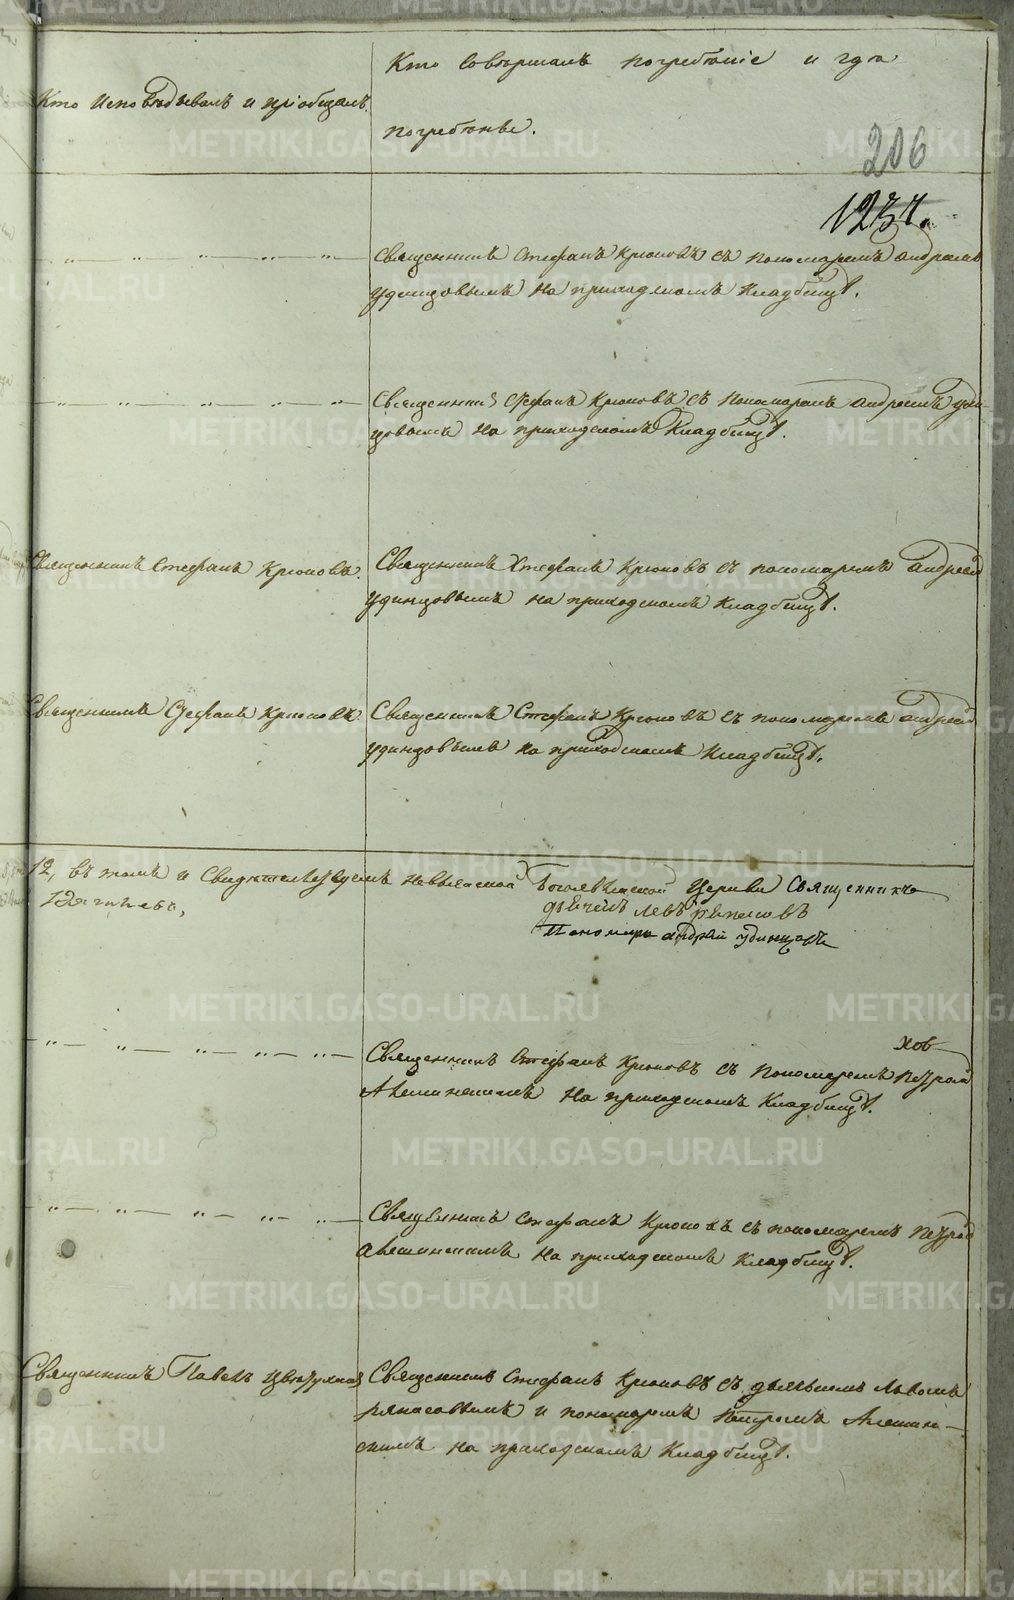 Кто исповѣдывалъ и пріобщалъ.
Кто совершалъ погребеніе и гдѣ
погребены.
206
1237.
Священникъ Стефанъ Крюковъ съ пономаремъ Андреемъ
Удинцовымъ на приходскомъ кладбищѣ.
Священникъ Стефанъ Крюковъ съ пономаремъ Андреемъ Удин-
цовымъ на приходскомъ кладбищѣ.
Священникъ Стефанъ Крюковъ.
Священникъ Стефанъ Крюковъ съ пономаремъ Андреемъ
Удинцовымъ на приходскомъ кладбищѣ.
Священникъ Стефанъ Крюковъ
Священникъ Стефанъ Крюковъ съ пономаремъ Андреемъ
Удинцовымъ на приходскомъ кладбищѣ.
12, въ томъ и свидѣтельствуемъ Невьянской Богоявленской Церкви Священникъ
Левъ
Пономарь Андрей Удинцовъ
Священникъ Стефанъ Крюковъ съ пономаремъ Петромъ
на приходскомъ кладбищѣ.
Священникъ Стефанъ Крюковъ съ пономаремъ Петромъ
на приходскомъ кладбищѣ.
Священникъ Павелъ
Священникъ Стефанъ Крюковъ съ дьячкомъ Львомъ
и пономаремъ Петромъ
на приходскомъ кладбищѣ.
METRIKI.GASO-URAL.RU